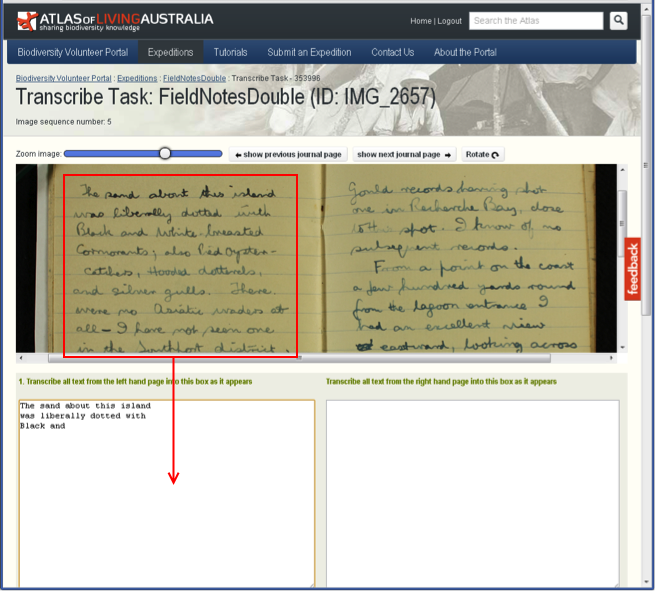 ATLAS OF LIVING AUSTRALIA
sharing biodiversity knowledge
Home | Logout
Search the Atlas
Biodiversity Volunteer Portal
Expeditions
Tutorials
Submit an Expedition
Contact Us
About the Portal
Biodiversity Volunteer Portal : Expeditions : FieldNotesDouble : Transcribe Task - 353996
Transcribe Task: FieldNotesDouble (ID: IMG_2657)
Image sequence number: 5
Zoom image:
show previous journal page
show next journal page
Rotate
The sand about this island
was liberally dotted with
Black and White-breasted
Cormorants; also Pied Oyster-
catchers, Hooded dotterels,
and silver gulls. There
were no Asiatic waders at
all - I have not seen one
in the Southport district.
Gould records having shot
one in Recherche Bay, close
to the spot. I know of no
subsequent records.
From a point on the coast
a few hundred yards round
from the lagoon entrance I
had an excellent view
eastward, looking across
feedback
1. Transcribe all text from the left hand page into this box as it appears
Transcribe all text from the right hand page into this box as it appears
The sand about this island
was liberally dotted with
Black and